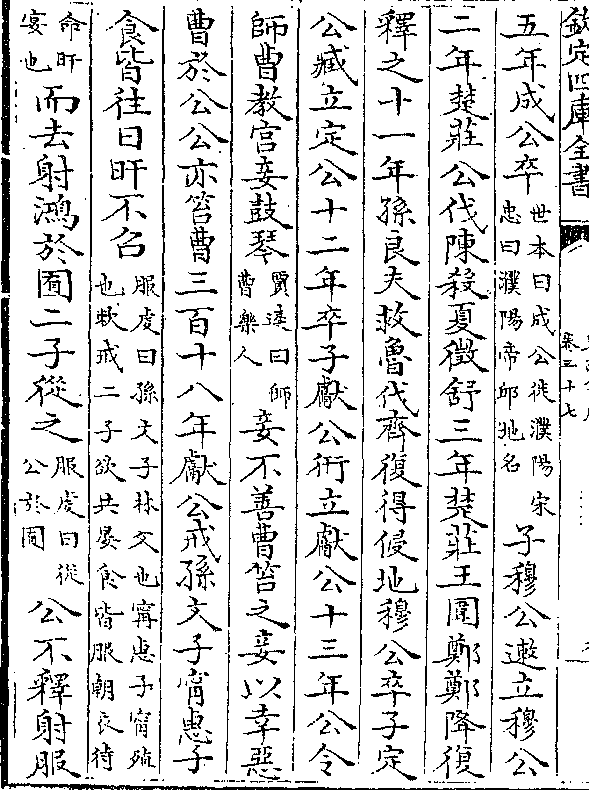 欽定四庫全書
卷三十七
五年成公卒世本曰成公徙濮陽宋忠曰濮陽帝邱地名子穆公遬立穆公
二年楚莊公伐陳殺夏徵舒三年楚莊王圍鄭鄭降復
釋之十一年孫良夫救魯伐齊復得侵地穆公卒子定
公臧立定公十二年卒子獻公衎立獻公十三年公令
師曹教宮妾鼓琴賈逵曰師曹樂人妾不善曹笞之妾以幸惡
曹於公公亦笞曹三百十八年獻公戒孫文子甯惠子
食皆往日旰不召服虔曰孫文子林父也甯惠子甯殖也敕戒二子欲共晏食皆服朝衣待
命旰宴也而去射鴻於囿二子從之服虔曰從公於囿公不釋射服